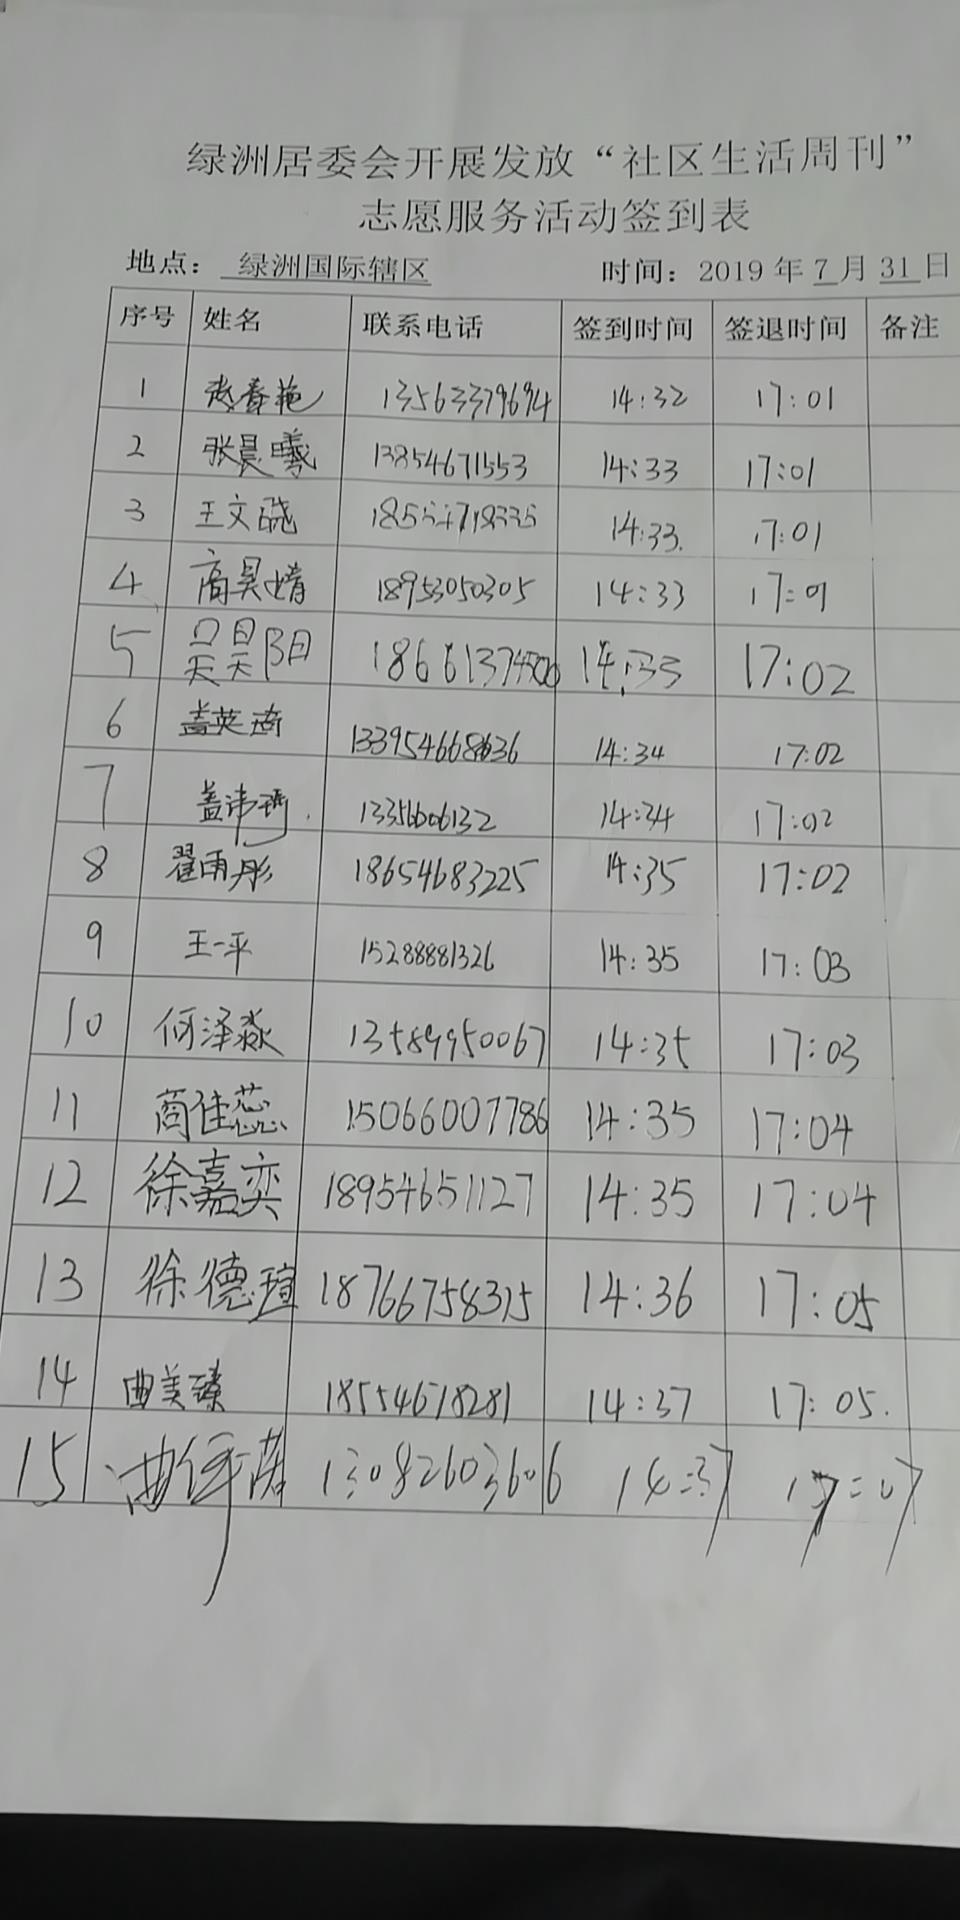 绿洲居委会开展发放“社区生活周刊”
志愿服务活动签到表
地点：绿洲国际辖区 时间：2019年7月31日
序号 姓名 联系电话 签到时间 签退时间 备注
1 赵春艳 13563379694 14:32 17:01
2 张晨曦 13854671553 14:33 17:01
3 王文晓 14:33. 17:01
4 商昊婧 18953050305 14:33 17:01
5 吴昊阳 14:33 17:02
6 盖英琦 14:34 17:02
7 13356606132 14:34 17:02
8 翟雨彤 18654683225 14:35 17:02
9 王一平 15288881326 14:35 17:03
10 何泽淼 13589950067 14:35 17:03
11 商佳蕊 15066007786 14:35 17:04
12 徐嘉奕 18954651127 14:35 17:04
13 徐德瑄 18766758315 14:36 17:05
14 曲美臻 18554678281 14:37 17:05.
15 13082603606 14:37 17:07